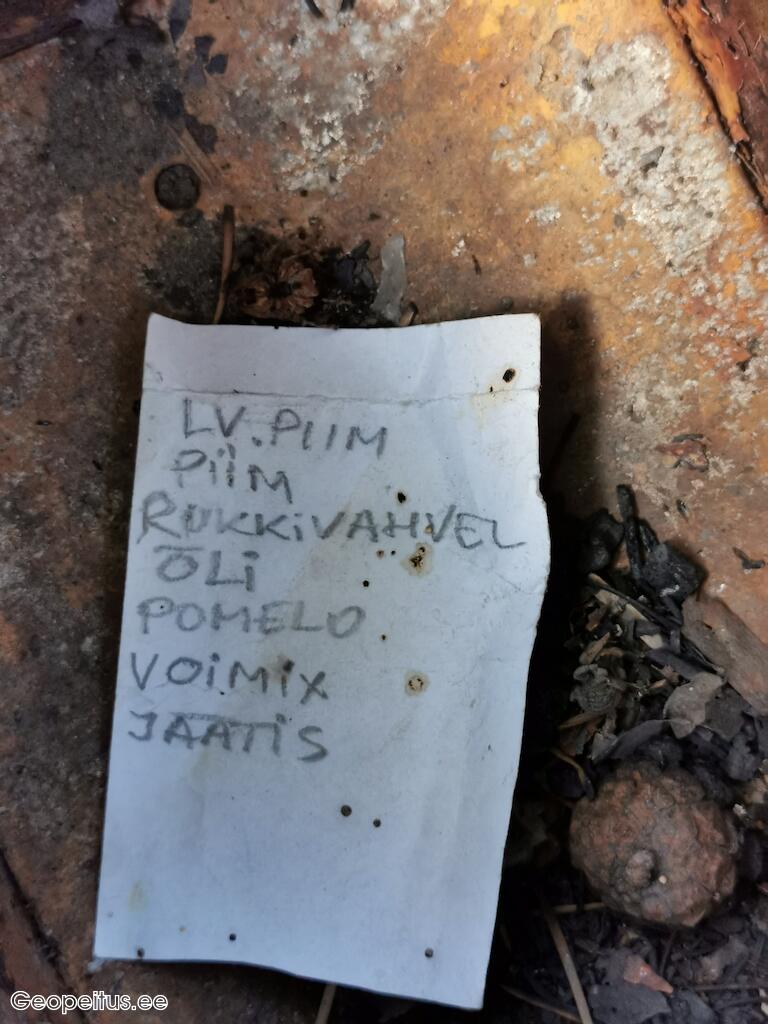 LV. PIIM
PIIM
RUKKIVAHVEL
ÕLI
POMELO
VOIMIX
JÄÄTIS
Geopeitus.ee